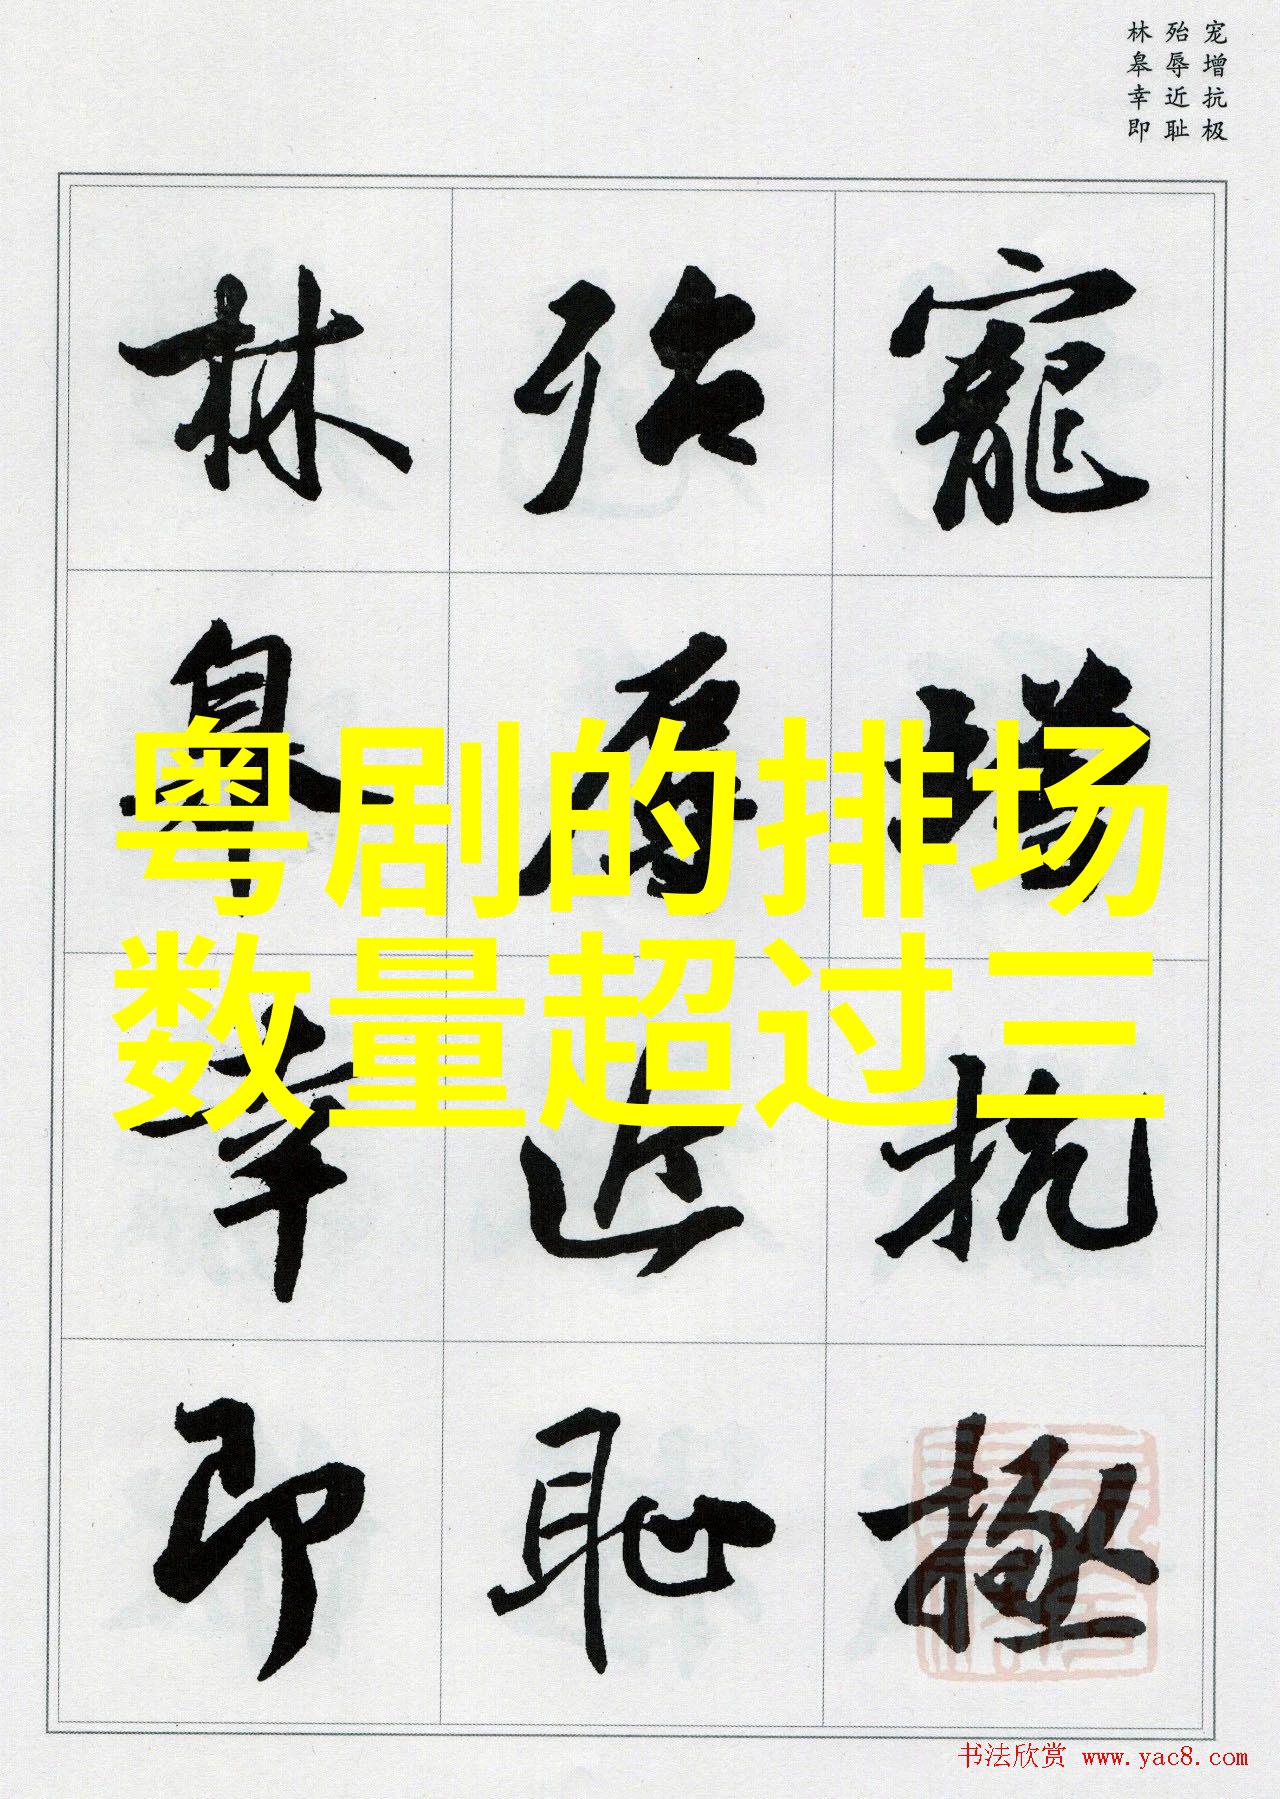 宠增抗极
殆辱近耻
林皋幸即
寵增抗極
殆辱近恥
林皋幸即
粤剧的排场
数量超过三
书法欣赏 www.yac8.com